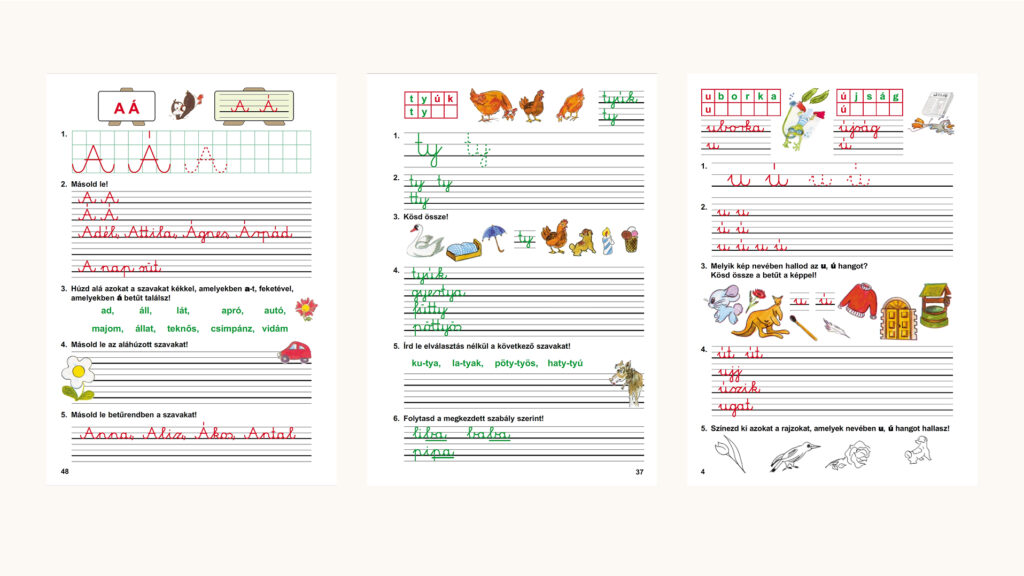 A Á
A Á
1.
A Á A
2. Másold le!
A A
Á Á
Adél, Attila, Ágnes, Árpád
A nap süt.
3. Húzd alá azokat a szavakat kékkel, amelyekben a-t, feketével,
amelyekben á betűt találsz!
ad, áll, lát, apró, autó,
majom, állat, teknős, csimpánz, vidám
4. Másold le az aláhúzott szavakat!
5. Másold le betűrendben a szavakat!
Anna, Aliz, Ákos, Antal
48
t y ú k
t y
tyúk
ty
1.
ty ty
2.
ty ty
tty
3. Kösd össze!
ty
4.
tyúk
gyertya
fütty
pöttyös
5. Írd le elválasztás nélkül a következő szavakat!
ku-tya, la-tyak, pöty-työs, haty-tyú
6. Folytasd a megkezdett szabály szerint!
liba baba
pipa
37
u b o r k a
u
uborka
u
ú j s á g
ú
újság
ú
1.
u ú u ú
2.
u u
ú ú
u ú u ú
3. Melyik kép nevében hallod az u, ú hangot?
Kösd össze a betűt a képpel!
u ú
4.
út út
ujj
úszik
ugat
5. Színezd ki azokat a rajzokat, amelyek nevében u, ú hangot hallasz!
4